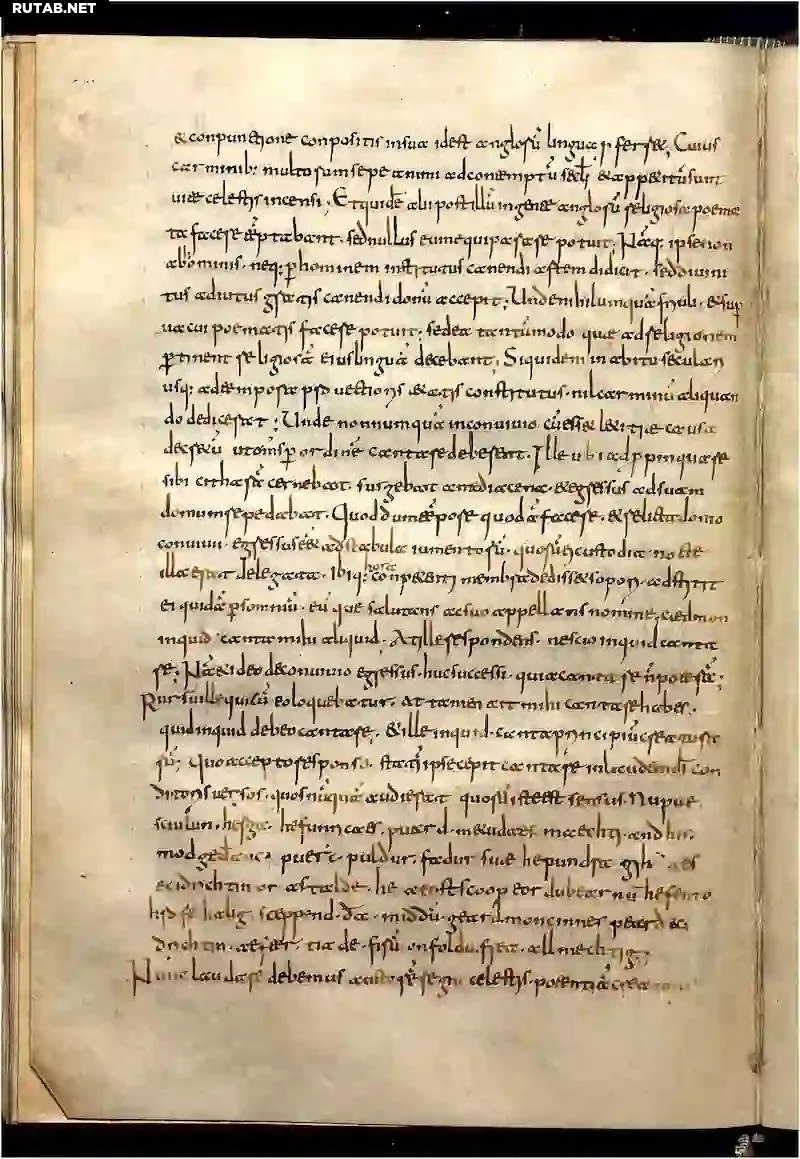 RUTAB.NET
& conpunctione conpositis in sua id est anglorū lingua proferret; Cuius
carminib; multorum sepe animi ad contemptū secli & appetitū sunt
uitae celestis incensi; Et quidē alii post illū in gente anglorū religiosa poema
ta facere tēptabant. sed nullus eum equiparare potuit; Nāq; ipse non
ab hominis. neq; p hominem institutus canendi artem didicit. sed diuini
tus adiutus gratis canendi donū accepit; Unde nihil umquā friuoli. & sup
uacui poematis facere potuit; sed ea tantūmodo quae ad religionem
ptinent religiosā eius linguā decebant; Siquidem in abitu seculari
usq; ad tempora prouectioris aetatis constitutus. nil carminū aliquan
do dedicerat; Unde nonnumquā in conuiuio cū esset letitiae causa
decretū ut omnes p ordinē cantare deberent. Ille ubi adppinquare
sibi citharā cernebat. surgebat a media cena. & egressus ad suam
domum repedabat. Quod dum tēpore quodā faceret. & relicta domo
conuiuii. egressus ēēt ad stabula iumentorū. quorū ei custodia nocte
illa erat delegata. ibiq; hora conpetenti membra dedisset sopori. adstitit
ei quidā p somniū. eūque salutans ac suo appellans nomine; caedmon
inquid canta mihi aliquid. At ille respondens. nescio inquid canta
re; Nā & ideo de conuiuio egressus. huc successi. quia cantare n̄ poterā;
Rursū ille qui cū eo loquebatur. attamen ait mihi cantare habes.
quid inquid debeo cantare. & ille inquid. canta principiū creatura
rū; Quo accepto responso. statī ipse cepit cantare in laudem dī con
ditoris uersos. quos nūquā audierat quorū iste est sensus. Nu pue
sciulun. herga. hefunricaes. puard. metudaes maechti. and his.
modgedanc. puerc. puldur. fadur suae he pundra gih aes
eci drichtin or astalde. he aerist scoop eordu bearnū hefento
hrofe halig sceppend. da. middū. geard. moncinnes peard eci
drichtin. aefter. tiade. firū on foldu. frea. allmechtig;
Nunc laudare debemus auctorē regni celestis. potentiā creatoris